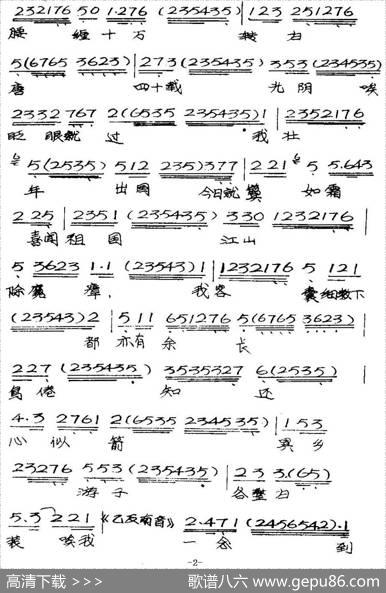 232176 50 1.276 (235435) | 123 251276
腰 缠十万 转归
5(6765 3623) | 273(235435) 353(234535)
唐 四十载 光阴 唉
2332 767 2(6535 235435) | 2352176
眨眼就 过 我壮
5(2535) 512 235)377 | 221 5 5.643
年 出国 今日就鬓 如霜
225 | 2351 (235435) 330 1232176
喜闻祖国 江山
5 3623 1.1 (23543)1 | 1232176 5 121
除魔障, 我客 囊细数下
(23543)2 | 511 651276 5(6765 3623) |
都亦有余 长
227 (235435) 3535327 6(2535) |
鸟倦 知 还
4.3 2761 2(6535 234535) | 153
心似箭 异乡
23276 553(235435) | 23 3.(65)
游子 各整归
5.3 221 《乙反南音》 2.471 (2456542).1
装 唉我 一念 到
-2-
高清下载 >>> 歌谱八六 www.gepu86.com